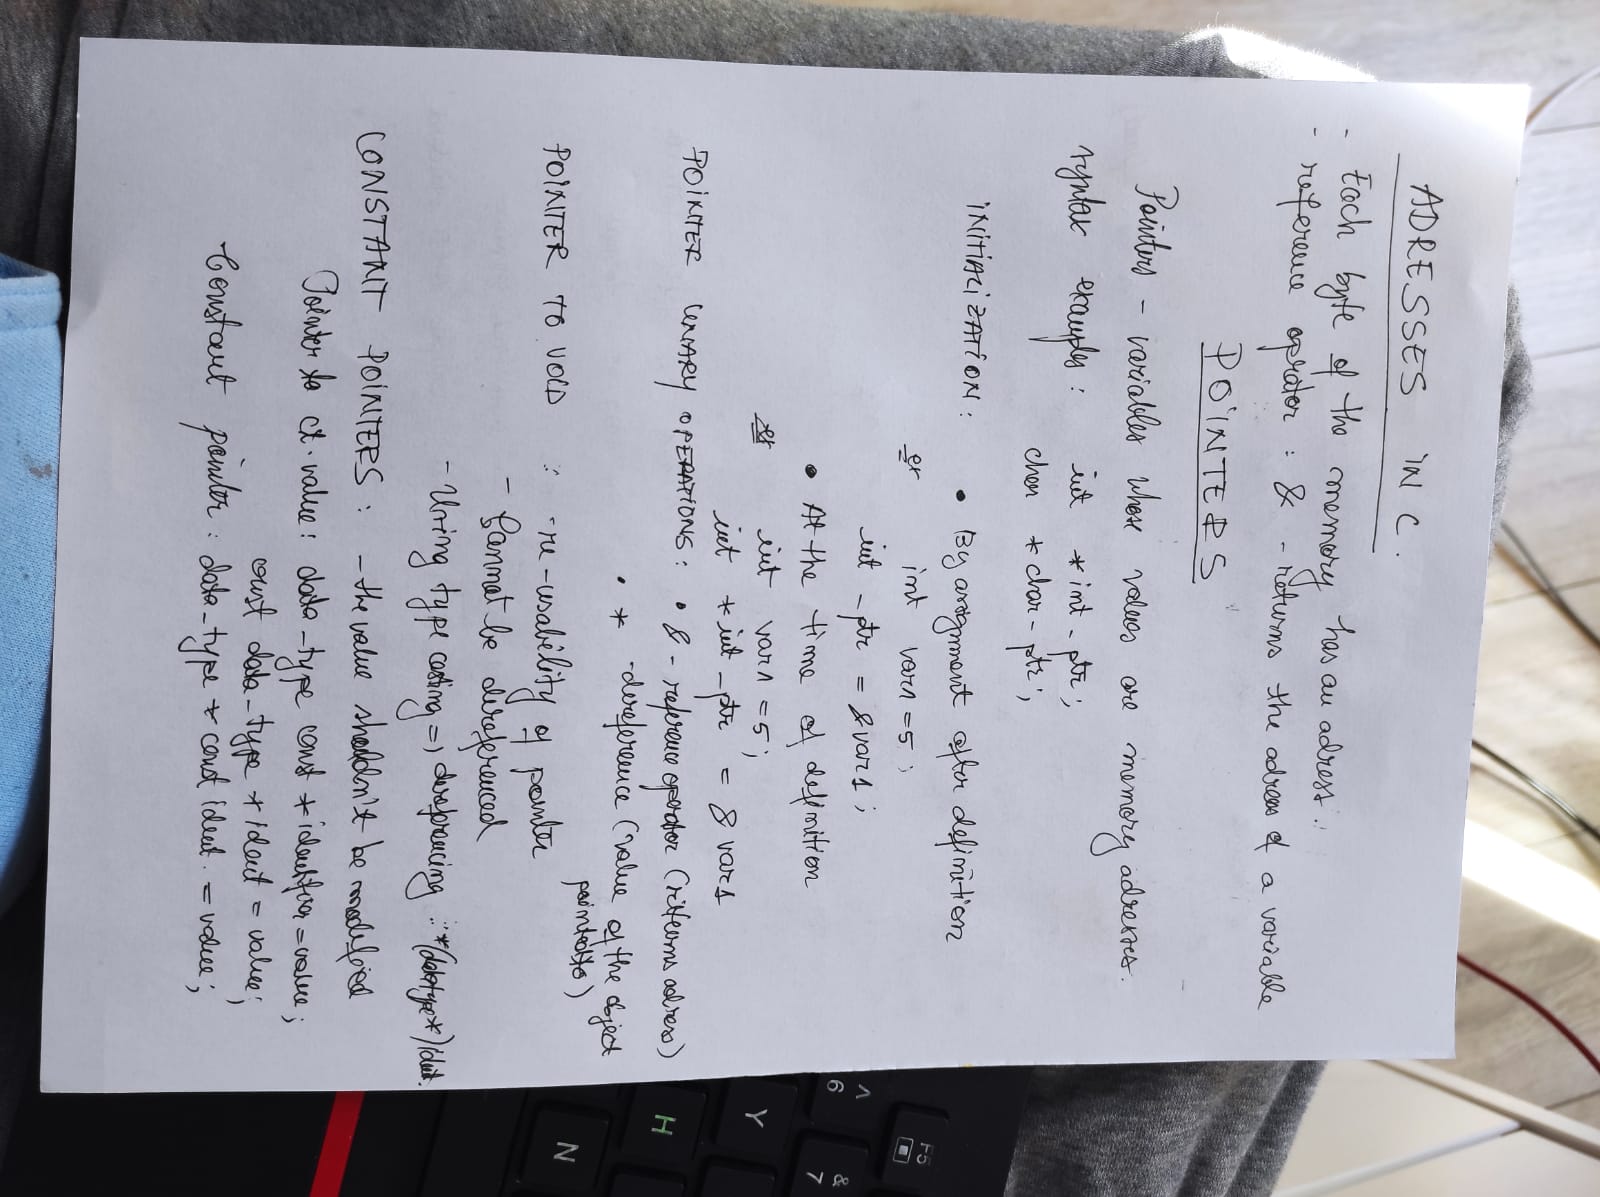 ADRESSES IN C.
- Each byte of the memory has an adress.
- reference oprator : & - returns the adress of a variable
POINTERS
Pointers - variables whose values are memory adresses.
syntax examples : int *int_ptr;
char *char-ptr;
INITIALIZATION : • By assignment after definition
ex int var1 = 5 ;
int_ptr = &var1 ;
• At the time of definition
ex int var1 = 5 ;
int *int_ptr = & var1
POINTER UNARY OPERATIONS : • & - reference operator (returns adress)
• * - dereference (value of the object
pointed to)
POINTER TO VOID : - re-usability of pointer
- Cannot be dereferenced
- Using type casting => dereferencing : *(datatype*)ident.
CONSTANT POINTERS : - the value shouldn't be modified
Pointer to ct. value : data_type const * identifier = value ;
const data_type * ident = value ;
Constant pointer : data_type * const ident. = value ;
F5
^
6
&
7
Y
H
N